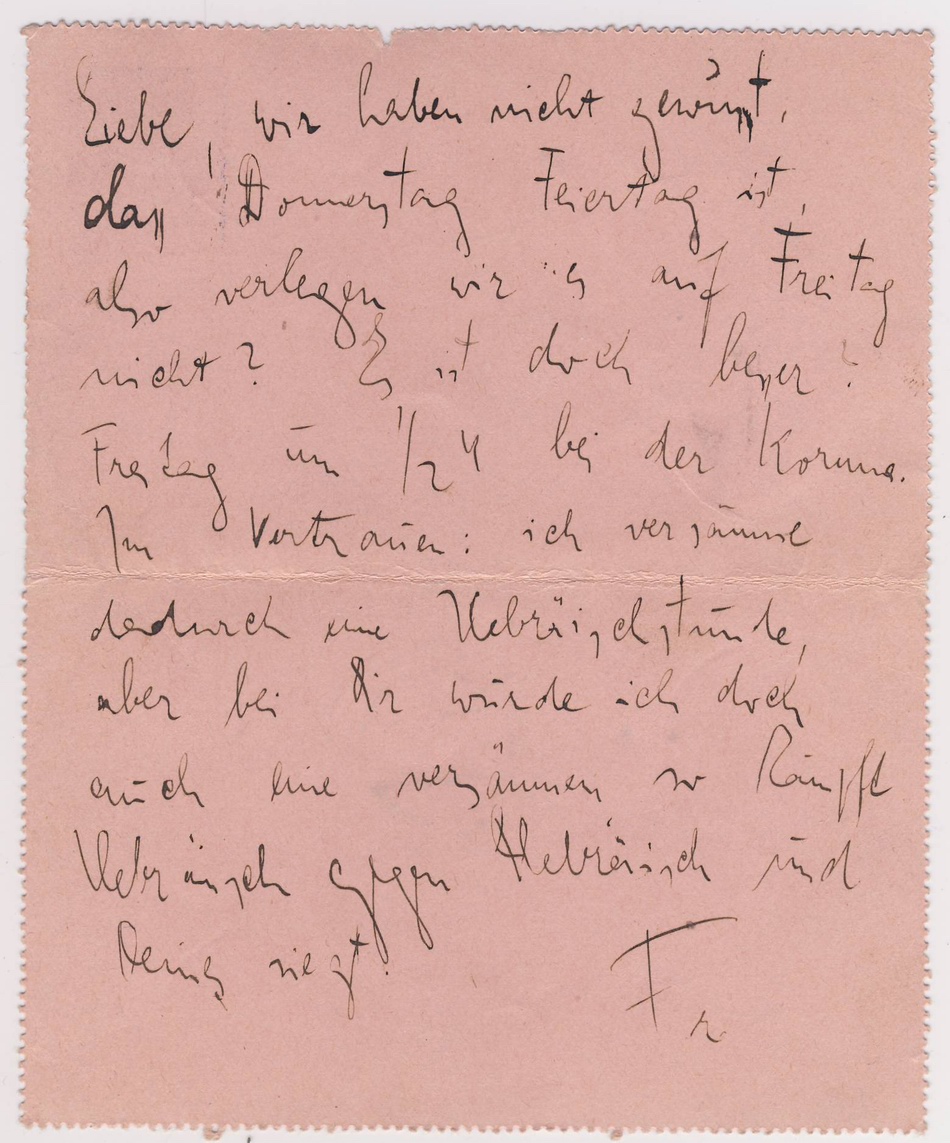 Liebe, wir haben nicht gewusst,
dass Donnerstag Feiertag ist,
also verlegen wir es auf Freitag
nicht? Es ist doch besser?
Freitag um ½ 4 bei der Koruna.
Im Vertrauen: ich versäume
dadurch eine Hebräischstunde,
aber bei Dir würde ich doch
auch eine versäumen so kämpft
Hebräisch gegen Hebräisch und
Deines siegt.
Fr